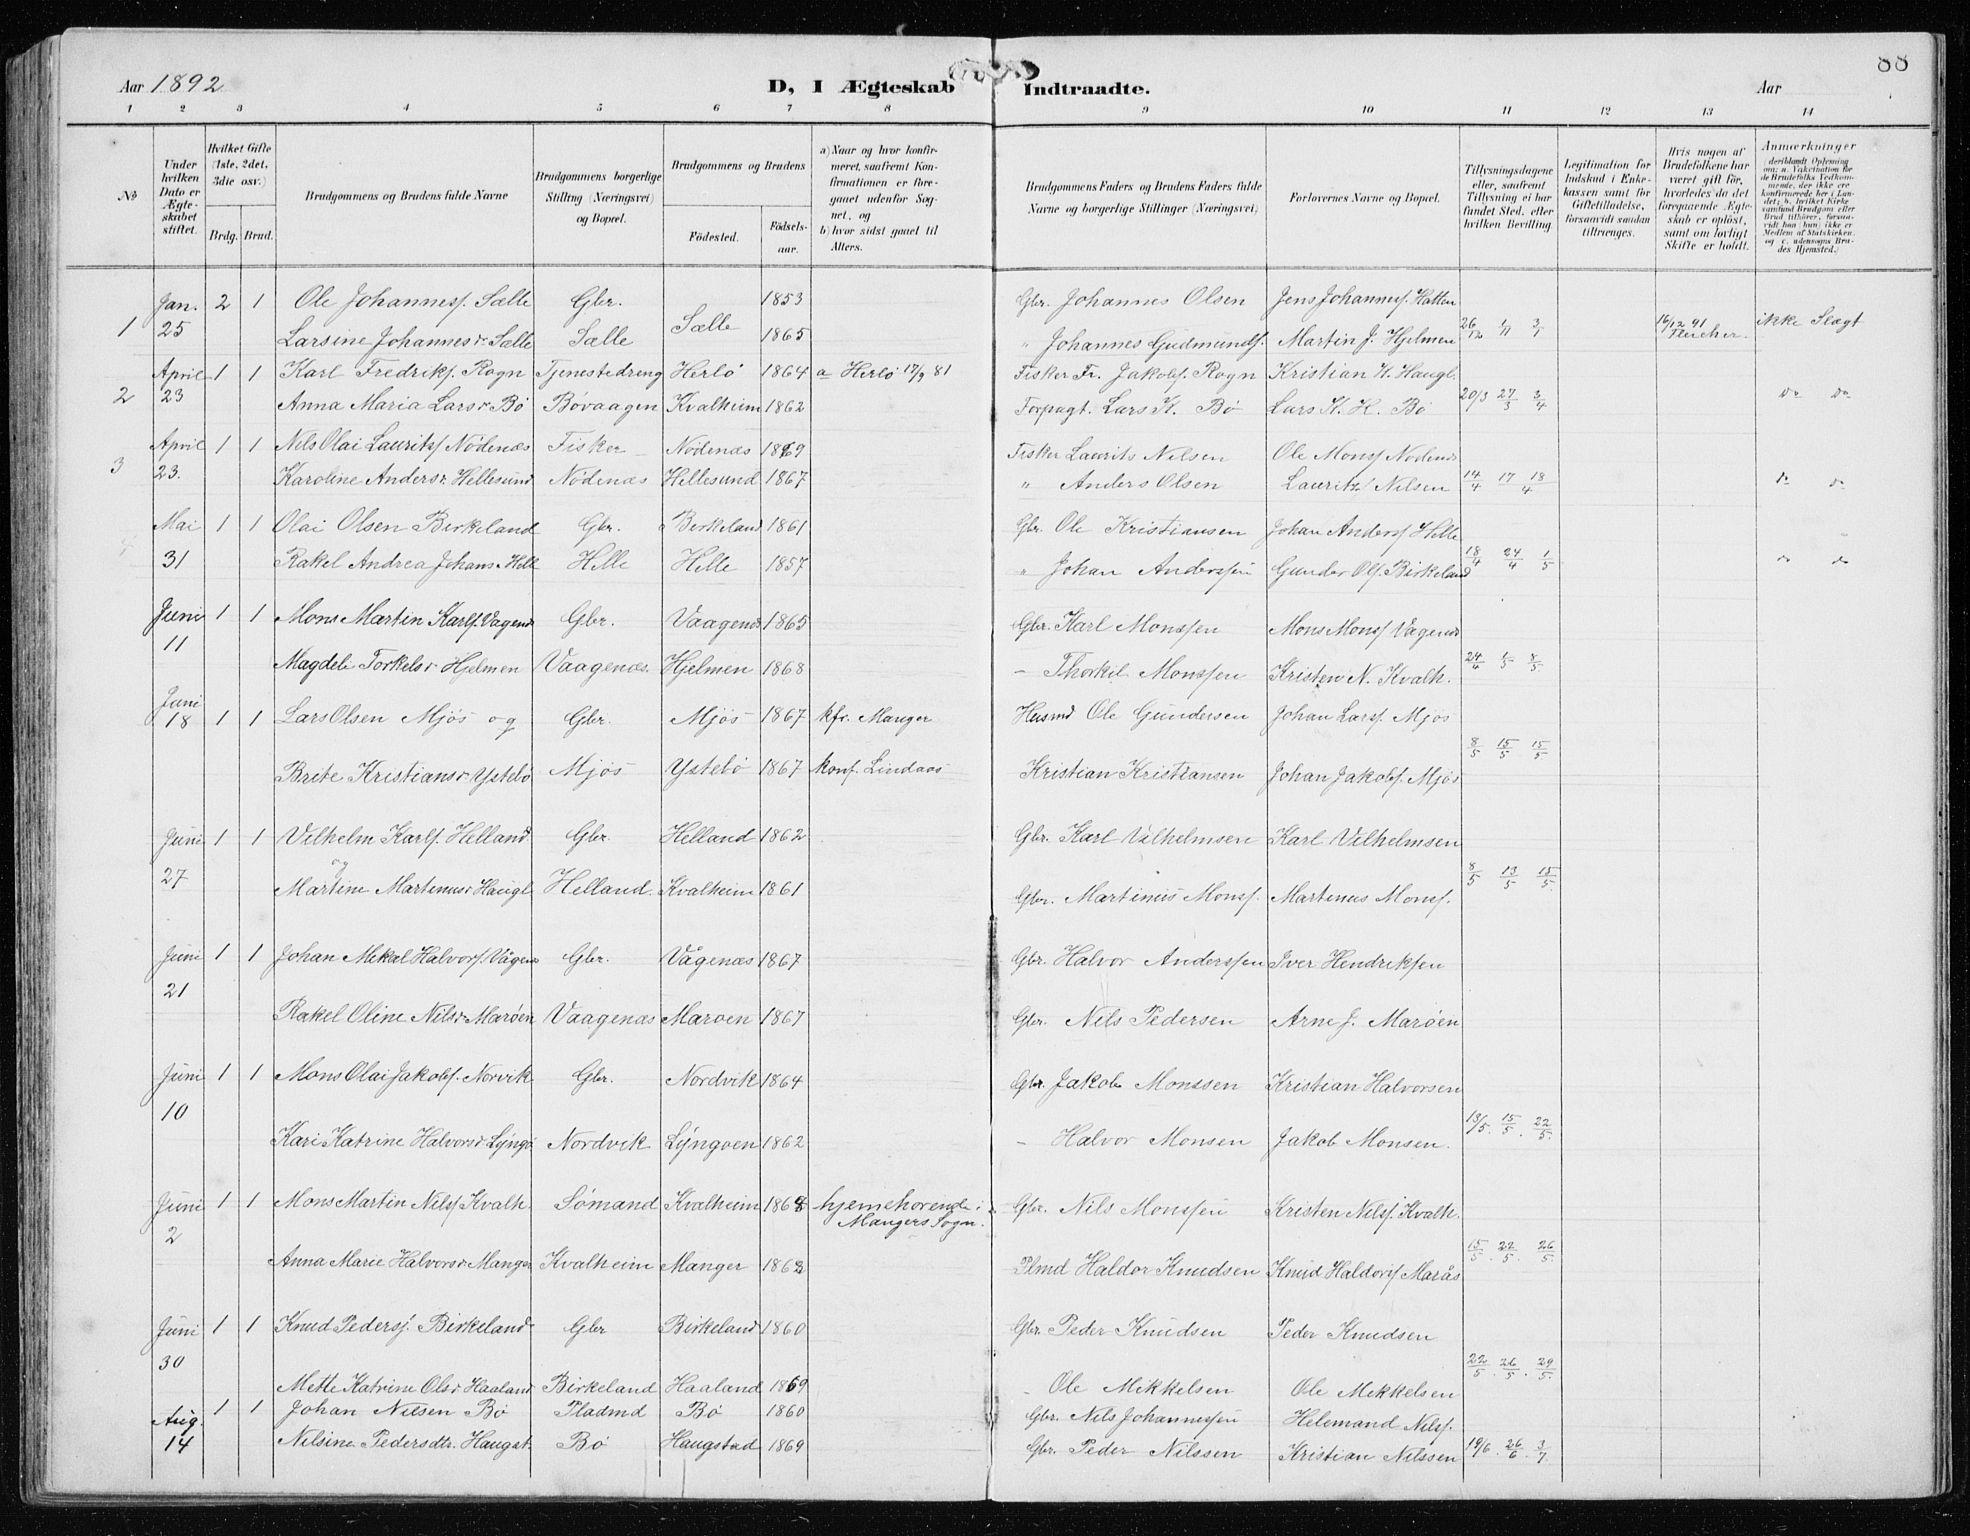 88
Aar 1892
D, I Ægteskab Indtraadte.
Aar
1 2 3 4 5 6 7 8 9 10 11 12 13 14
No
Under hvilken Dato er Ægteskabet stiftet.
Hvilket Gifte (1ste, 2det, 3die osv.)
Brdg. Brud.
Brudgommens og Brudens fulde Navne
Brudgommens borgerlige Stilling (Næringsvei) og Bopæl.
Brudgommens og Brudens
Fødested.
Fødselsaar.
a) Naar og hvor konfirmeret, saafremt Konfirmationen er foregaaet udenfor Sognet, og
b) hvor sidst gaaet til Alters.
Brudgommens Faders og Brudens Faders fulde Navne og borgerlige Stillinger (Næringsvei)
Forlovernes Navne og Bopæl.
Tillysningsdagene eller, saafremt Tillysning ei har fundet Sted, efter hvilken Bevilling.
Legitimation for Indskud i Enkekassen samt for Giftetilladelse, forsaavidt saadan tiltrænges.
Hvis nogen af Brudefolkene har været gift før, hvorledes da det foregaaende Ægteskab er opløst, samt om lovligt Skifte er holdt.
Anmærkninger
(deriblandt Oplysning om: a. Vaksination for de Brudefolks Vedkommende, der ikke ere konfirmerede her i Landet; b. hvilket Kirkesamfund Brudgom eller Brud tilhører, forsaavidt han (hun) ikke er Medlem af Statskirken, og c. udensogns Brudes Hjemsted.)
Jan. 2 1 Ole Johannesf. Sælle Gbr. 1853 Gbr. Johannes Olsen Jens Johannesf. Hatten
1 25 Larsine Johannesdr Sælle Sælle Sælle 1865 " Johannes Gudmundf. Martin J. Hjelmen 26/12 1/1 3/1 16/12 91 ikke Slægt
April 1 1 Karl Fredrikf. Rogn Tjenestedreng Herlø 1864 a Herlø 17/9 81 Fisker Fr. Jakobf. Rogn Kristian K. Haugl.
2 23 Anna Maria Larsdr Bø Bøvaagen Kvalheim 1862 Forpagt. Lars K. Bø Lars K. H. Bø 20/3 27/3 3/4 do do
April 1 1 Nils Olai Lauritsf Nødenæs Fisker Nødenæs 1869 Fisker Laurits Nilsen Ole Monsf Nødenæs
3 23. Karoline Andersdr Hellesund Nødenæs Hellesund 1867 " Anders Olsen Lauritz Nilsen 14/4 17 18/4 do do
Mai 1 1 Olai Olsen Birkeland Gbr. Birkeland 1861 Gbr. Ole Kristiansen Johan Andersf Hille
4 31 Rakel Andrea Johansdr Hille Hille Hille 1857 " Johan Anderssen Gunder Olsf. Birkeland 18/4 24/4 1/5 do do
Juni 1 1 Mons Martin Karlsf. Vagenæs Gbr. Vaagenæs 1865 Gbr. Karl Monssen Mons Monsf Vågenæs
11 Magdeli Torkelsdr Hjelmen Vaagenæs. Hjelmen 1868 - Thorkil Monssen Kristen N. Kvalh. 24/4 1/5 8/5
Juni 18 1 1 Lars Olsen Mjøs og Gbr. Mjøs 1867 kfr. Manger Husmd Ole Gundersen Johan Larsf. Mjøs
Brite Kristiansdr Ystebø Mjøs Ystebø 1867 konf. Lindaas Kristian Kristiansen Johan Jakobsf. Mjøs 8/5 15/5 15/5
Juni 1 1 Vilhelm Karlsf. Helland Gbr. Helland 1862 Gbr. Karl Vilhelmsen Karl Vilhelmsen
og
27 Martine Martinusdr Haugl. Helland. Kvalheim 1861 Gbr. Martinus Monsf. Martinus Monsf. 8/5 13/5 15/5
Juni 1 1 Johan Mikal Halvorsf. Vågenæs Gbr. Vågenæs 1867 Gbr. Halvor Anderssen Iver Hendriksen
21 Rakel Oline Nilsdr Marøen Vaagenæs Marøen 1867 Gbr. Nils Pedersen Arne J. Marøen
Juni 1 1 Mons Olai Jakobsf. Norvik Gbr. Nordvik 1864 Gbr. Jakob Monssen Kristian Halvorsen
10 Kari Katrine Halvorsdr Lyngø Nordvik Lyngøen 1862 - Halvor Monsen Jakob Monsen. 13/5. 15/5. 22/5.
Juni 1 1 Mons Martin Nilsf Kvalh. Sømand Kvalheim 1868 hjemehørende i Mangers Sogn. Gbr. Nils Monssen Kristen Nilsf. Kvalh.
2 Anna Marie Halvorsdr Manger Kvalheim Manger 1862 Plmd Haldor Knudsen Knud Haldorsf Marås 15/5. 22/5. 26/5.
Juni 1 1 Knud Pedersf. Birkeland Gbr Birkeland 1860 Gbr. Peder Knudsen Peder Knudsen
30 Mette Katrine Olsdr Haaland Birkeland Haaland 1869 - Ole Mikkelsen Ole Mikkelsen 22/5. 26/5. 29/5.
Aug. 1 1 Johan Nilsen Bø Pladmd Bø 1860 Gbr. Nils Johannessen Helemand Nilsf.
14 Nilsine Pedersdtr. Haugst. Bø Haugstad 1869 Gbr. Peder Nilssen Kristian Nilssen 19/6. 26/6. 3/7.